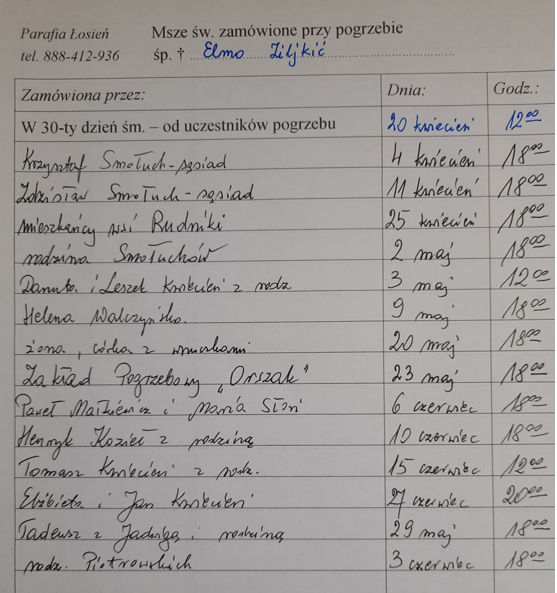 Parafia Łosień
tel. 888-412-936
Msze św. zamówione przy pogrzebie
śp. † Elmo Ziljkić
Zamówiona przez: Dnia: Godz.:
W 30-ty dzień śm. – od uczestników pogrzebu 20 kwiecień 12 00
Krzysztof Smołuch - sąsiad 4 kwiecień 18 00
Zdzisław Smołuch - sąsiad 11 kwiecień 18 00
mieszkańcy wsi Rudniki 25 kwiecień 18 00
rodzina Smołuchów 2 maj 18 00
Danuta i Leszek Kwiecień z rodz. 3 maj 12 00
Helena Walczyńska 9 maj 18 00
żona, córka z wnukami 20 maj 18 00
Zakład Pogrzebowy „Orszak" 23 maj 18 00
Paweł Maikiewicz i Maria Słoń 6 czerwiec 18 00
Henryk Kozieł z rodziną 10 czerwiec 18 00
Tomasz Kwiecień z rodz. 15 czerwiec 12 00
Elżbieta i Jan Kwiecień 27 czerwiec 20 00
Tadeusz z Jadwigą i rodziną 29 maj 18 00
rodz. Piotrowskich 3 czerwiec 18 00